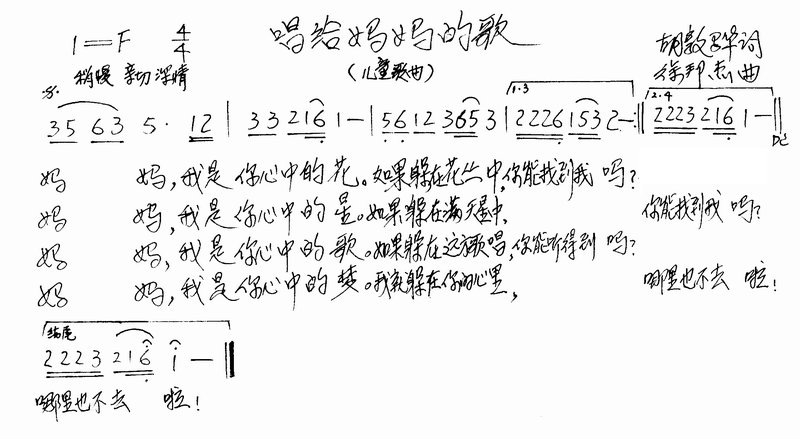 1=F 4/4 唱给妈妈的歌 胡敦骅词
稍慢 亲切 深情 (儿童歌曲) 徐邦杰曲
1·3 2·4
35 63 5· 12 | 33 216 1— | 56 12 365 3 | 2226 153 2— :|| 2223 216 1— || D.C
妈 妈,我是你心中的花。如果躲在花丛中,你能找到我 吗?
妈 妈,我是你心中的星。如果躲在满天星中, 你能找到我 吗?
妈 妈,我是你心中的歌。如果躲在这首歌唱,你能听得到 吗?
妈 妈,我是你心中的梦。我就躲在你的心里, 哪里也不去 啦!
结尾
2223 216 i —
哪里也不去 啦!